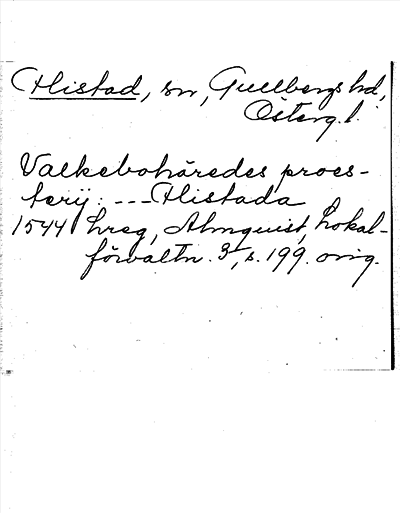 Flistad, sn, Gullbergs hd,
Österg. l.
Valkebohäredes proes-
terij: --- Flistada
1544 hreg, Almquist, Lokal-
förvaltn. 3, s. 199. orig.